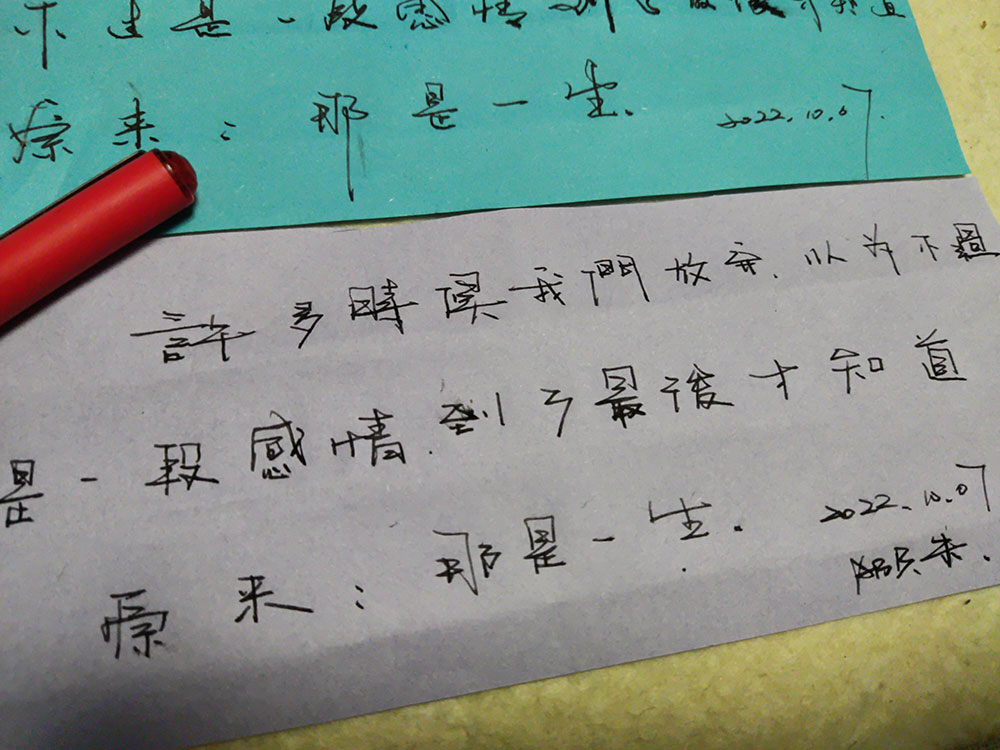 不过是一段感情 到了最後才知道
原来：那是一生。 2022.10.07.
許多時候我們放弃，以为不過
是一段感情，到了最後才知道
原来：那是一生. 2022.10.07